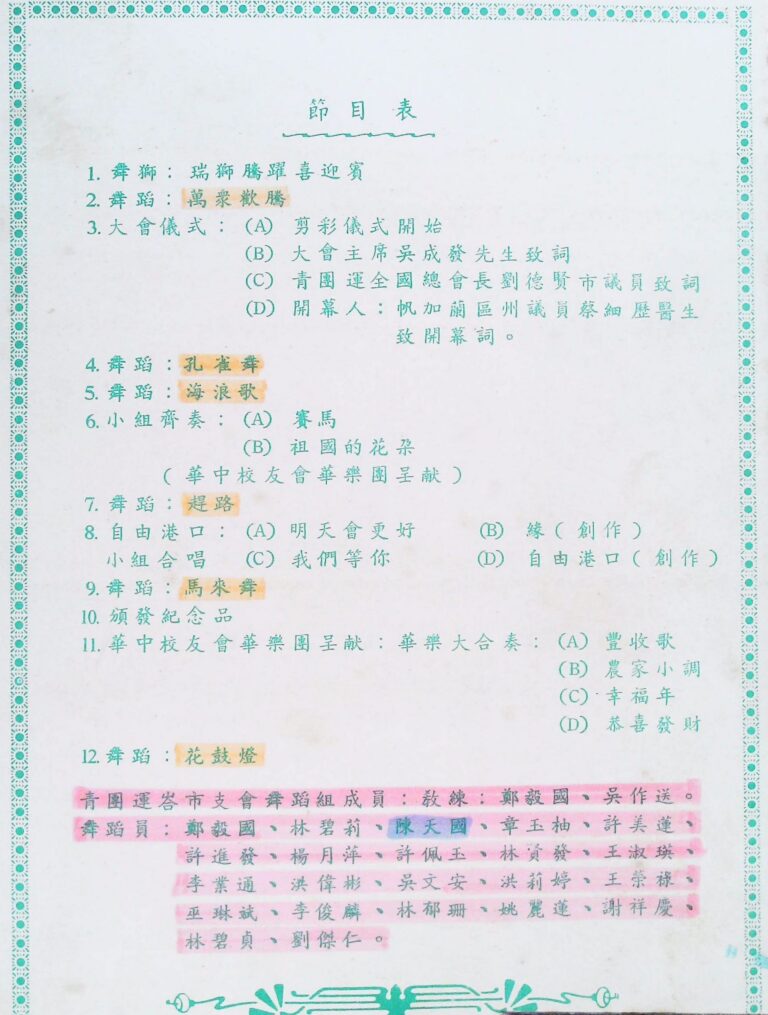 節目表
1. 舞獅：瑞獅騰躍喜迎賓
2. 舞蹈：萬衆歡騰
3. 大會儀式：(A) 剪彩儀式開始
(B) 大會主席吳成發先生致詞
(C) 青團運全國總會長劉德賢市議員致詞
(D) 開幕人：帆加蘭區州議員蔡細歷醫生
致開幕詞。
4. 舞蹈：孔雀舞
5. 舞蹈：海浪歌
6. 小組齊奏：(A) 賽馬
(B) 祖國的花朵
（華中校友會華樂團呈献）
7. 舞蹈：趕路
8. 自由港口：(A) 明天會更好 (B) 緣（創作）
小組合唱 (C) 我們等你 (D) 自由港口（創作）
9. 舞蹈：馬來舞
10. 頒發紀念品
11. 華中校友會華樂團呈献：華樂大合奏：(A) 豐收歌
(B) 農家小調
(C) 幸福年
(D) 恭喜發財
12. 舞蹈：花鼓燈
青團運峇市支會舞蹈組成員：敎練：鄭毅國、吳作送。
舞蹈員：鄭毅國、林碧莉、陳天國、章玉柚、許美蓮、
許進發、楊月萍、許佩玉、林資發、王淑瑛、
李業通、洪偉彬、吳文安、洪莉婷、王榮祿、
巫琳斌、李俊麟、林郁珊、姚麗蓮、謝祥慶、
林碧貞、劉傑仁。